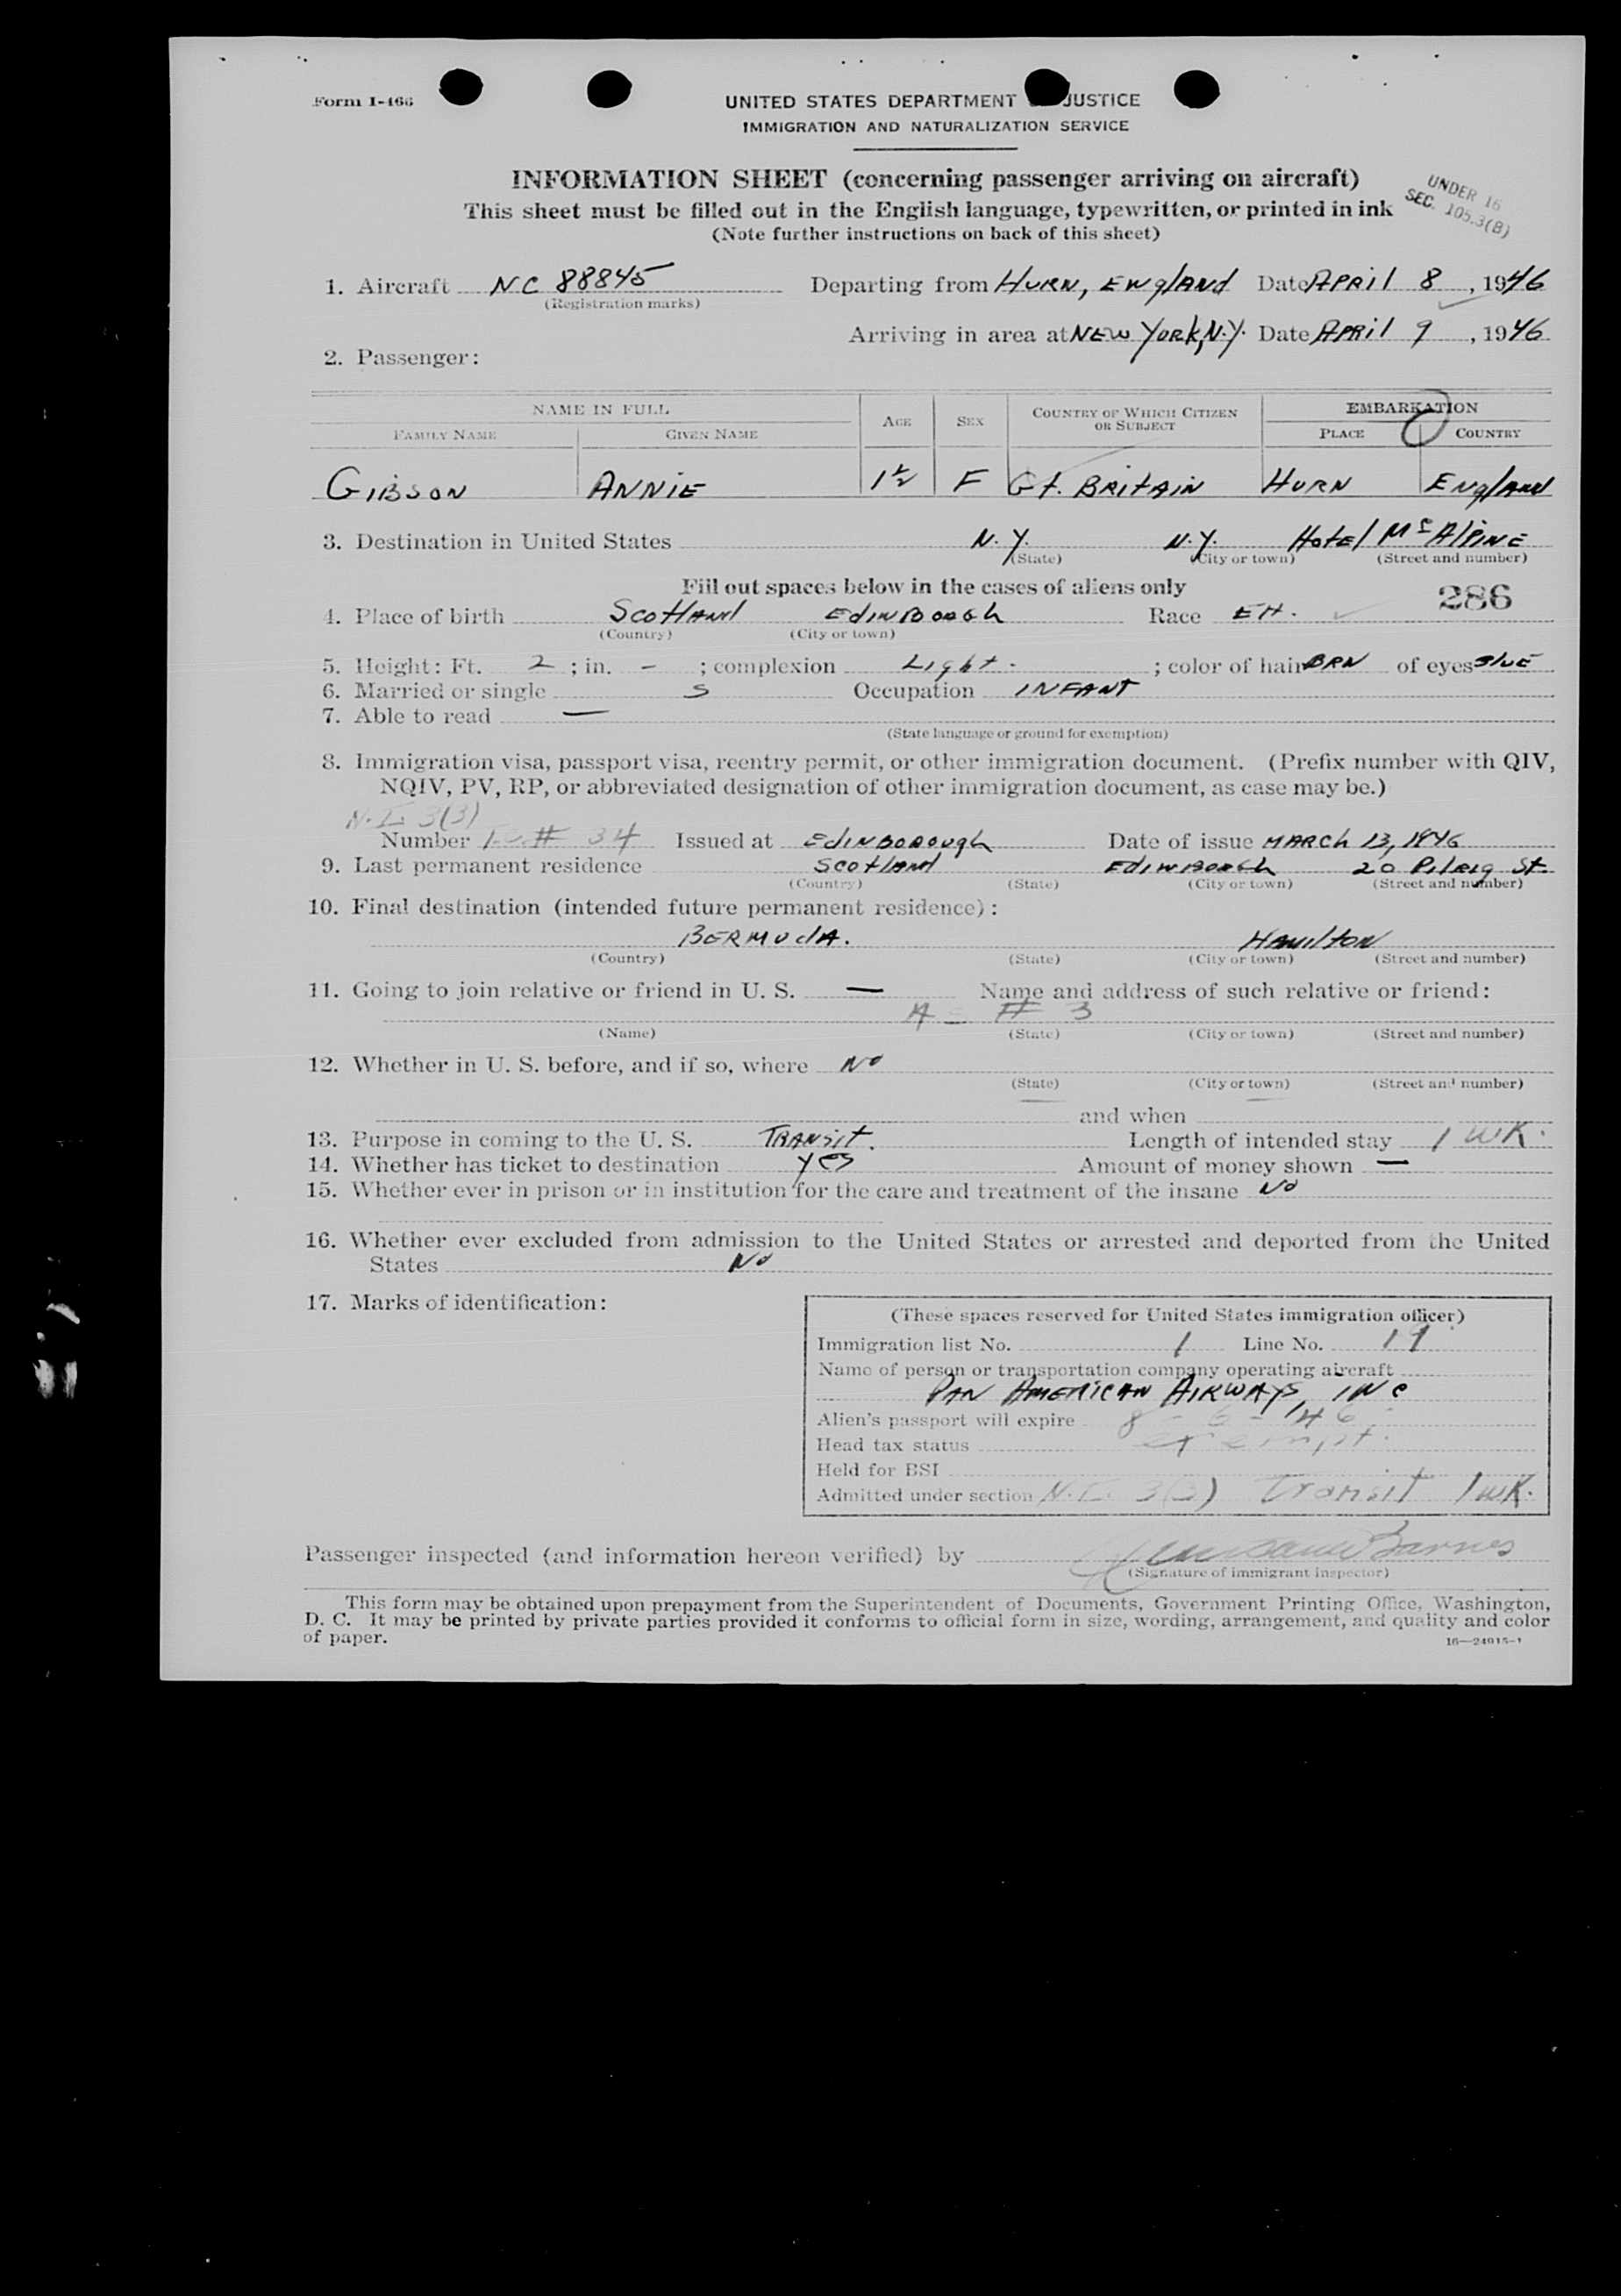 Form I-466
UNITED STATES DEPARTMENT JUSTICE
IMMIGRATION AND NATURALIZATION SERVICE
INFORMATION SHEET (concerning passenger arriving on aircraft)
This sheet must be filled out in the English language, typewritten, or printed in ink
(Note further instructions on back of this sheet)
UNDER 16
SEC. 105.3(B)
1. Aircraft NC 88845 Departing from HURN, ENglAND Date APRil 8, 1946
(Registration marks)
Arriving in area at NEW YORK, N.Y. Date APRil 9, 1946
2. Passenger:
NAME IN FULL AGE SEX COUNTRY OF WHICH CITIZEN OR SUBJECT EMBARKATION
FAMILY NAME GIVEN NAME PLACE COUNTRY
GIBSON ANNIE 1½ F Gt. BRITAIN HURN ENglAND
3. Destination in United States N.Y. N.Y. HotEl McAlPINE
(State) (City or town) (Street and number)
Fill out spaces below in the cases of aliens only
286
4. Place of birth ScotlAND EdINBOROGh Race EH.
(Country) (City or town)
5. Height: Ft. 2 ; in. - ; complexion Light - ; color of hair BRN of eyes BluE
6. Married or single S Occupation INFANT
7. Able to read —
(State language or ground for exemption)
8. Immigration visa, passport visa, reentry permit, or other immigration document. (Prefix number with QIV,
NQIV, PV, RP, or abbreviated designation of other immigration document, as case may be.)
N.I. 3(3)
Number # 34 Issued at EdINBOROugh Date of issue MARCh 13, 1946
9. Last permanent residence ScotlAND EdINBORGh 20 Pilrig St.
(Country) (State) (City or town) (Street and number)
10. Final destination (intended future permanent residence):
BERMUdA. HAMIltON
(Country) (State) (City or town) (Street and number)
11. Going to join relative or friend in U. S. — Name and address of such relative or friend:
A - # 3
(Name) (State) (City or town) (Street and number)
12. Whether in U. S. before, and if so, where No
(State) (City or town) (Street and number)
and when
13. Purpose in coming to the U. S. TRANSit. Length of intended stay 1 WK.
14. Whether has ticket to destination yes Amount of money shown —
15. Whether ever in prison or in institution for the care and treatment of the insane No
16. Whether ever excluded from admission to the United States or arrested and deported from the United
States No
17. Marks of identification:
(These spaces reserved for United States immigration officer)
Immigration list No. 1 Line No. 19
Name of person or transportation company operating aircraft
PAN AMERICAN AIRWAYS, INC
Alien's passport will expire 8-6-46
Head tax status exempt.
Held for BSI
Admitted under section N.I. 3(3) Transit 1 wk.
Passenger inspected (and information hereon verified) by Barnes
(Signature of immigrant inspector)
This form may be obtained upon prepayment from the Superintendent of Documents, Government Printing Office, Washington,
D. C. It may be printed by private parties provided it conforms to official form in size, wording, arrangement, and quality and color
of paper.
16—24015-1